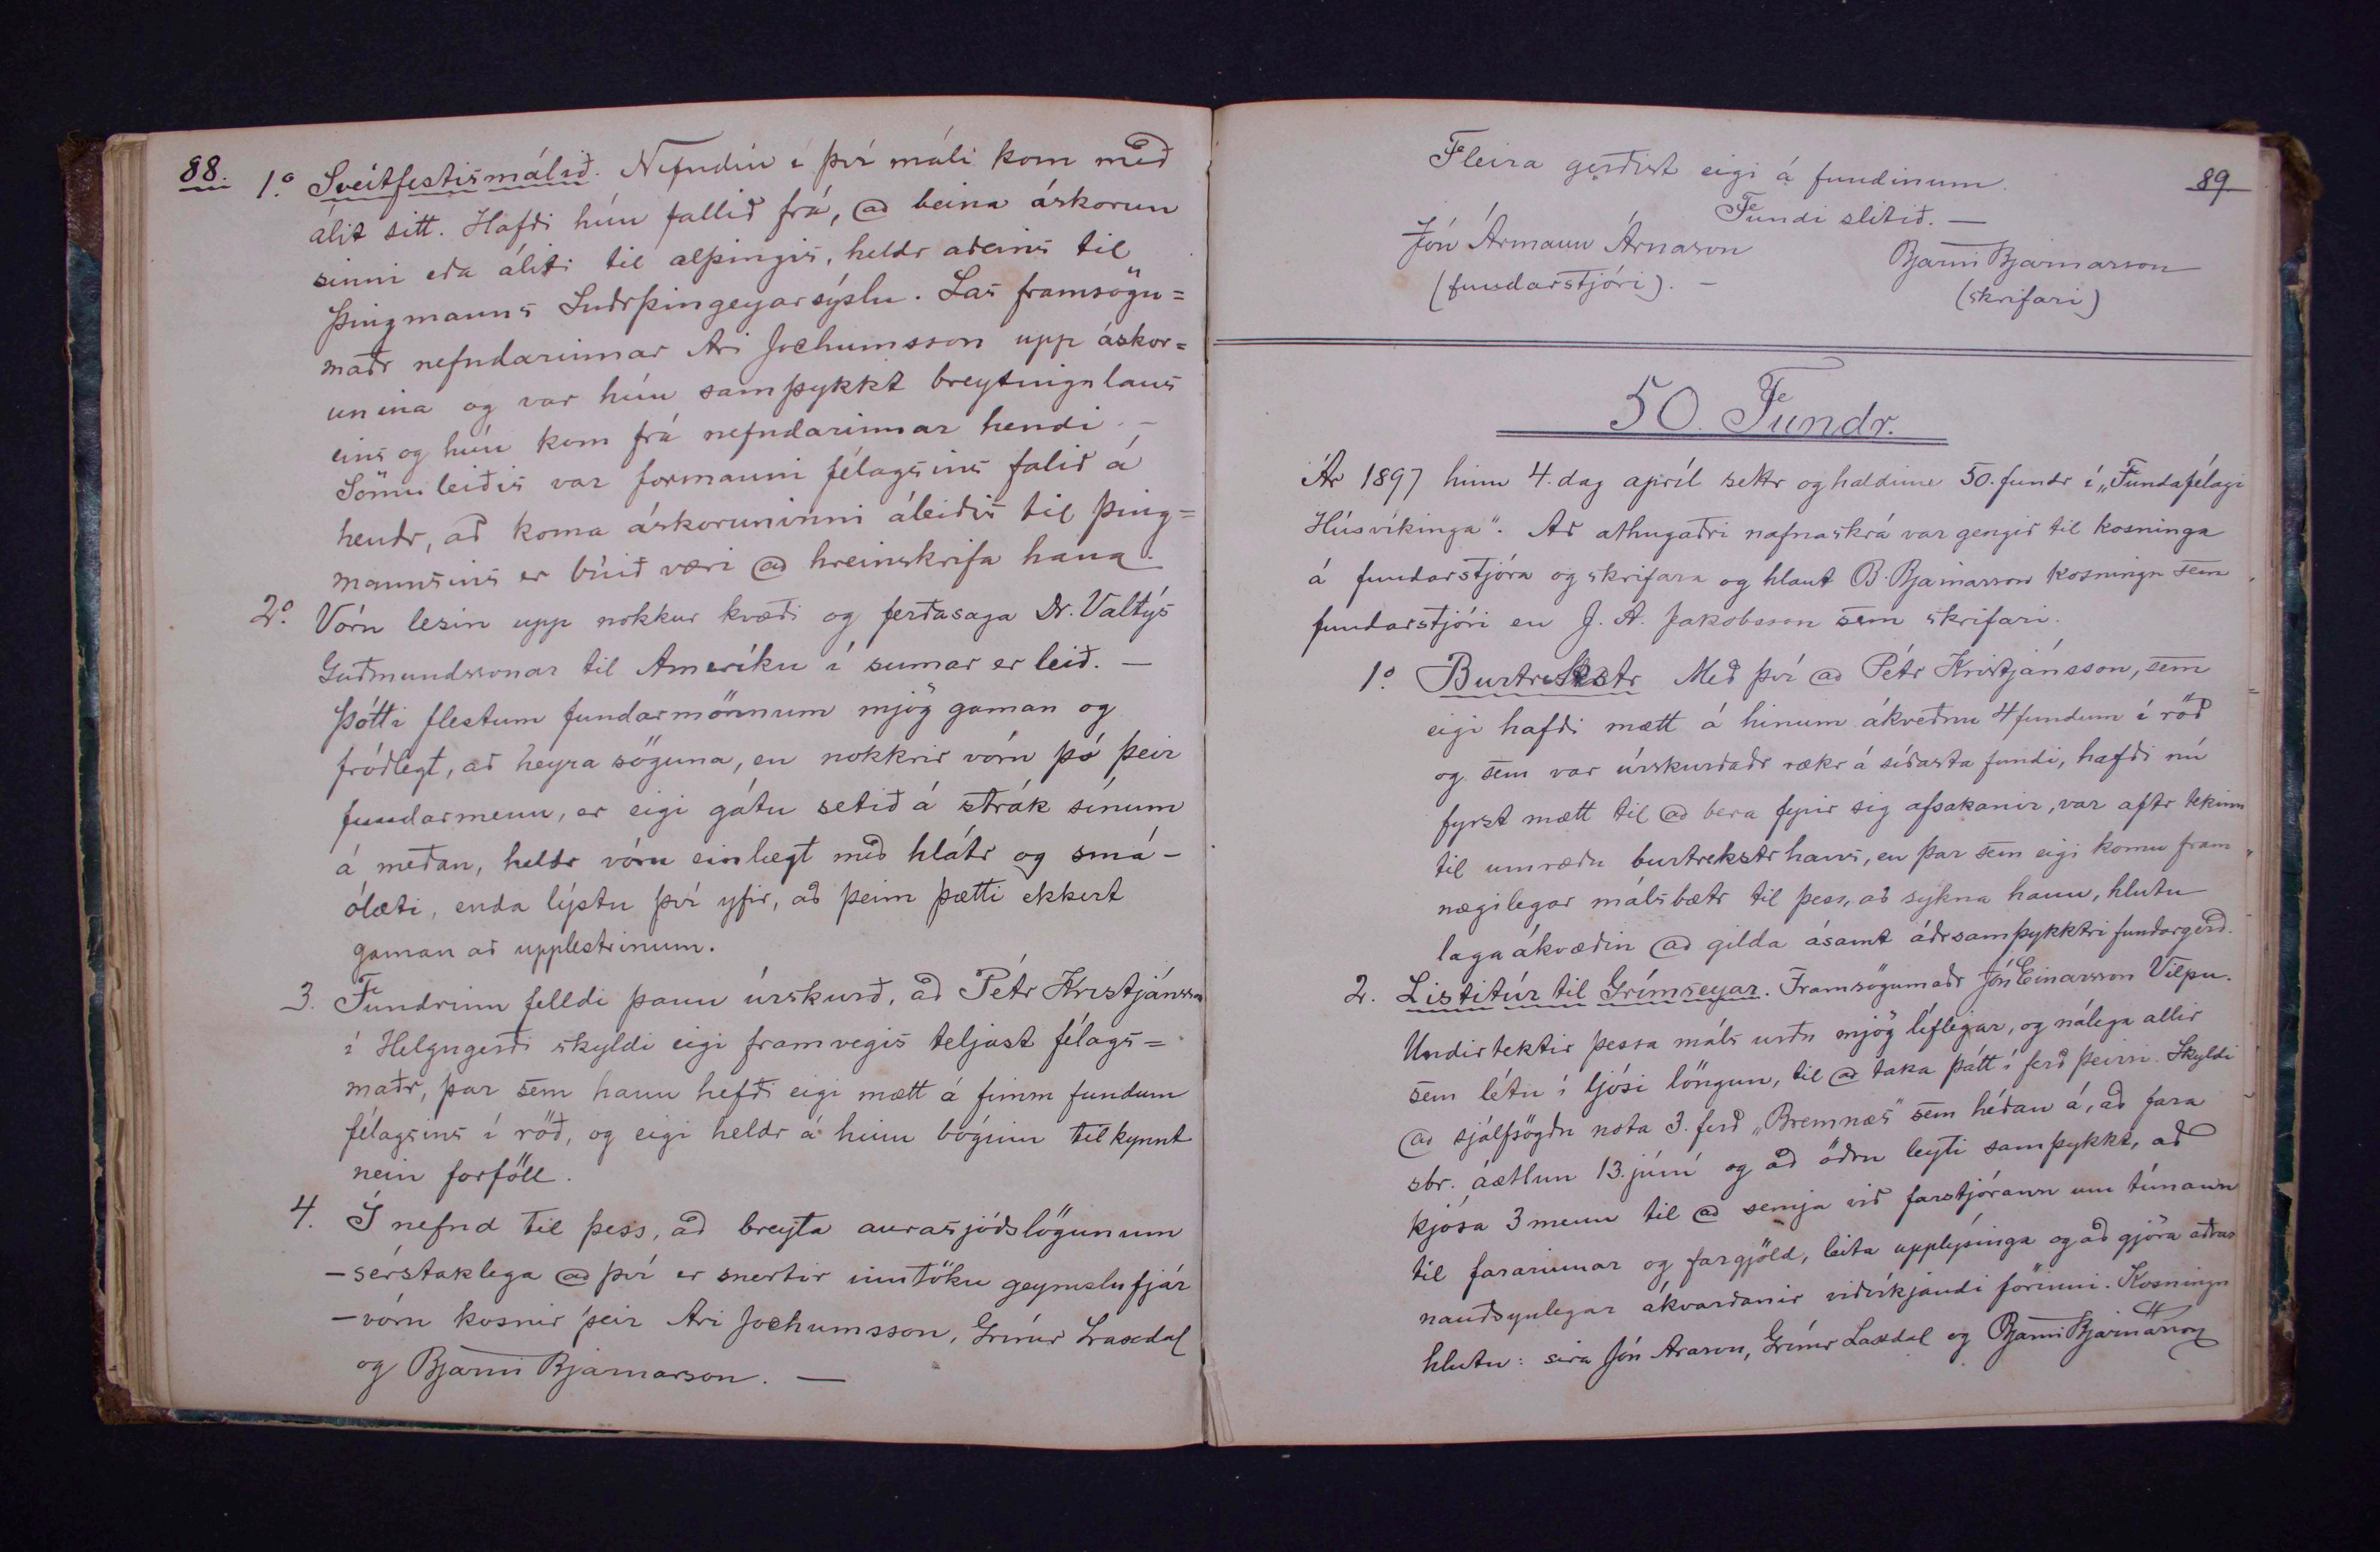 88.
1.º Sveitfestismálið. Nefndin í því máli kom með
álit sitt. Hafði hún fallið frá, @ beina áskorun
sinni eða áliti til alþingis, heldr aðeins til
þingmanns Suðrþingeyarsýslu. Las framsögu=
maðr nefndarinnar Ari Jochumsson upp áskor=
unina og var hún samþykkt breytingalaus
eins og hún kom frá nefndarinnar hendi. –
Sömuleiðis var formanni félagsins falið á
hendr, að koma áskoruninni áleiðis til þing=
mannsins er búið væri @ hreinskrifa hana.
2.º Vóru lesin upp nokkur kvæði og ferðasaga Dr. Valtýs
Guðmundssonar til Ameríku í sumar er leið. —
Þótti flestum fundarmönnum mjög gaman og
fróðlegt, að heyra söguna, en nokkrir vóru þó þeir
fundarmenn, er eigi gátu setið á strák sínum
á meðan, heldr vóru einlægt með hlátr og smá-
ólæti, enda lýstu því yfir, að þeim þætti ekkert
gaman að upplestrinum.
3. Fundrinn felldi þann úrskurð, að Pétr Kristjánsson
í Helgugerði skyldi eigi framvegis teljast félags=
maðr, þar sem hann hefði eigi mætt á fimm fundum
félagsins í röð, og eigi heldr á hinn bóginn tilkynnt
nein forföll.
4. Í nefnd til þess, að breyta aurasjóðslögunum
– sérstaklega @ því er snertir inntöku geymslufjár
– vóru kosnir þeir Ari Jochumsson, Grímr Laxdal
og Bjarni Bjarnarson. —
89
Fleira gerðist eigi á fundinum.
Fundi slitið. —
Jón Ármann Árnason
Bjarni Bjarnarson
(fundarstjóri). –
(skrifari)
50. Fundr.
Ár 1897 hinn 4. dag apríl settr og haldinn 50. fundr í „Fundafélagi
Húsvíkinga“. Að athugaðri nafnaskrá var gengið til kosninga
á fundarstjóra og skrifara og hlaut B. Bjarnarson kosningu sem
fundarstjóri en J. A. Jakobsson sem skrifari.
1.º Burtrekstr Með því @ Pétr Kristjánsson, sem
eigi hafði mætt á hinum ákveðnu 4 fundum í röð
og sem var úrskurðaðr rækr á síðasta fundi, hafði nú
fyrst mætt til @ bera fyrir sig afsakanir, var aftr tekinn
til umræðu burtrekstr hans, en þar sem eigi komu fram
nægilegar málsbætr til þess, að sýkna hann, hlutu
lagaákvæðin @ gilda ásamt áðrsamþykktri fundargerð.
2. Listitúr til Grímseyar. Framsögumaðr Jón Einarsson Vilpu.
Undirtektir þessa máls urðu mjög líflegar, og nálega allir
sem létu í ljósi löngun, til @ taka þátt í ferð þeirri. Skyldi
@ sjálfsögðu nota 3. ferð „Bremnæs“ sem héðan á, að fara
sbr. áætlun 13. júní og að öðru leyti samþykkt, að
kjósa 3 menn til @ semja við farstjórann um tímann
til fararinnar og fargjöld, leita upplýsinga og að gjöra aðrar
nauðsynlegar ákvarðanir viðvíkjandi förinni. Kosningu
hlutu: síra Jón Arason, Grímr Laxdal og Bjarni Bjarnarson